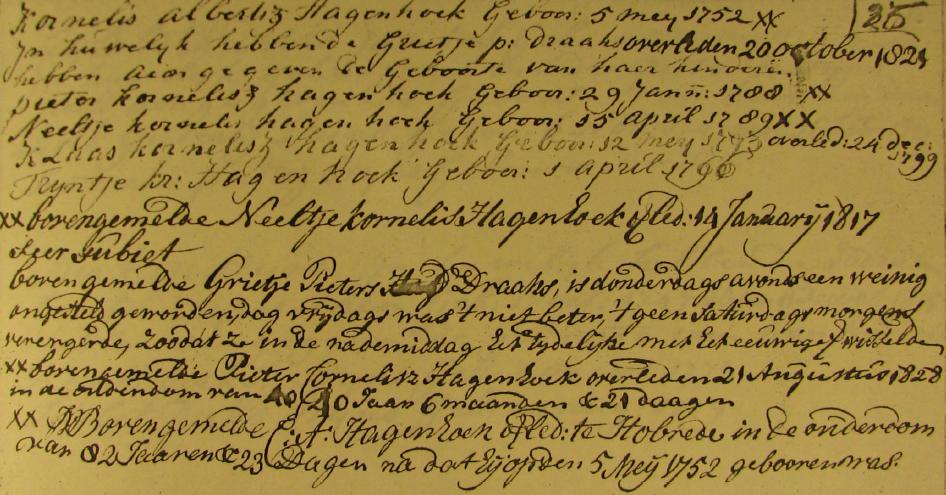 Kornelis albertsz Hagenhoek Geboor: 5 mey 1752 xx
35
In huwelyk hebbende Grietje p: Draaks overleden 20 october 1821
hebben aan gegeven de Geboorte van haer kinderen
pieter kornelisz hagen hoek Geboor: 29 Jann: 1788 xx
Neeltje kornelis hagen hoek Geboor: 15 april 1789 xx
Klaas kornelisz hagen hoek Geboor: 12 mey 1793 overled: 24 dec: 1799
Tryntje kr: Hagen hoek Geboor: 1 april 1796
xx bovengemelde Neeltje kornelis Hagenhoek Ofled: 14 January 1817
seer subiet
boven gemelde Grietje Pieters Draaks, is donderdags avonds een weinig
ongesteld geworden, dag vrijdags was 't niet beter, 't geen Saturdags morgens
verergerde, zoodat ze in de nademiddag het tydelyke met het eeuwige wisselde
xx bovengemelde Pieter Cornelisz Hagenhoek overleden 21 Augustus 1828
in de ouderdom van 40 Jaar 6 maanden & 21 daagen
xx Bovengemelde C: A: Hagenhoek Ofled: te Hobrede in de ouderdom
van 82 Jaaren & 23 Dagen na dat hij op den 5 Meij 1752 gebooren was.